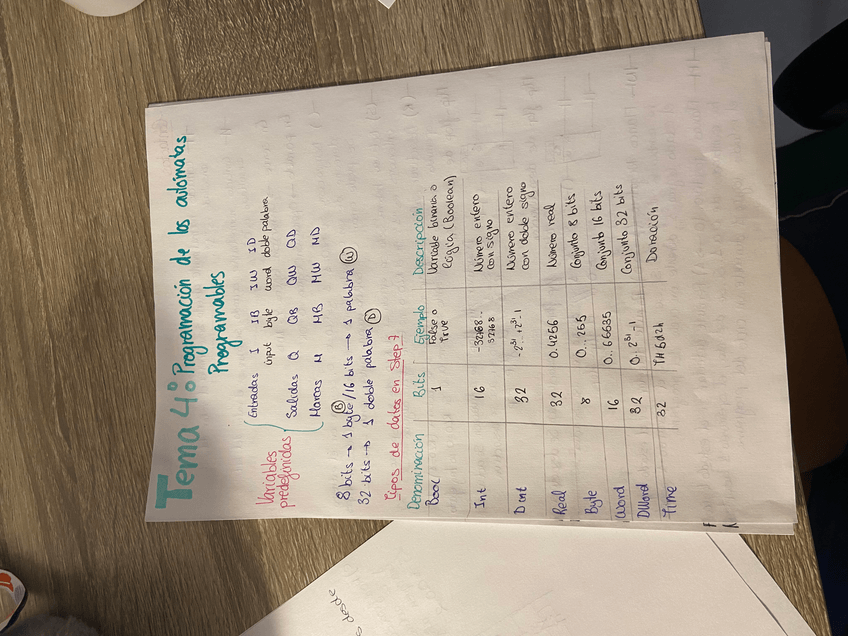 Tema 4: Programación de los autómatas
Programables
Variables predefinidas
Entradas I IB IW ID
input byte word doble palabra
Salidas Q QB QW QD
Marcas M MB MW MD
8 bits → 1 byte (B) / 16 bits → 1 palabra (W)
32 bits → 1 doble palabra (D)
Tipos de datos en Step7
Denominación Bits Ejemplo Descripción
Bool 1 False o True Variable binaria o lógica (Boolean)
Int 16 -32768.. 32768 Número entero con signo
D int 32 -2^31.. +2^31-1 Número entero con doble signo
Real 32 0.4256 Número real
Byte 8 0..255 Conjunto 8 bits
Word 16 0..65535 Conjunto 16 bits
DWord 32 0..2^31-1 Conjunto 32 bits
Time 32 Duración
desde